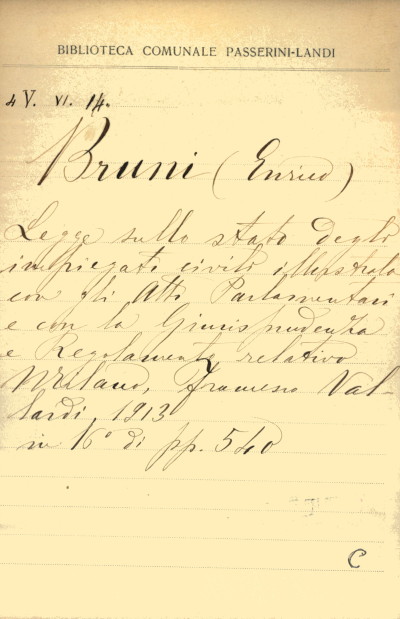 BIBLIOTECA COMUNALE PASSERINI-LANDI
4 V. VI. 14.
Bruni (Enrico)
Legge sullo stato degli
impiegati civili illustrata
con gli Atti Parlamentari
e con la Giurisprudenza
e Regolamento relativo
Milano, Francesco Val-
lardi, 1913
in 16° di pp. 540
C